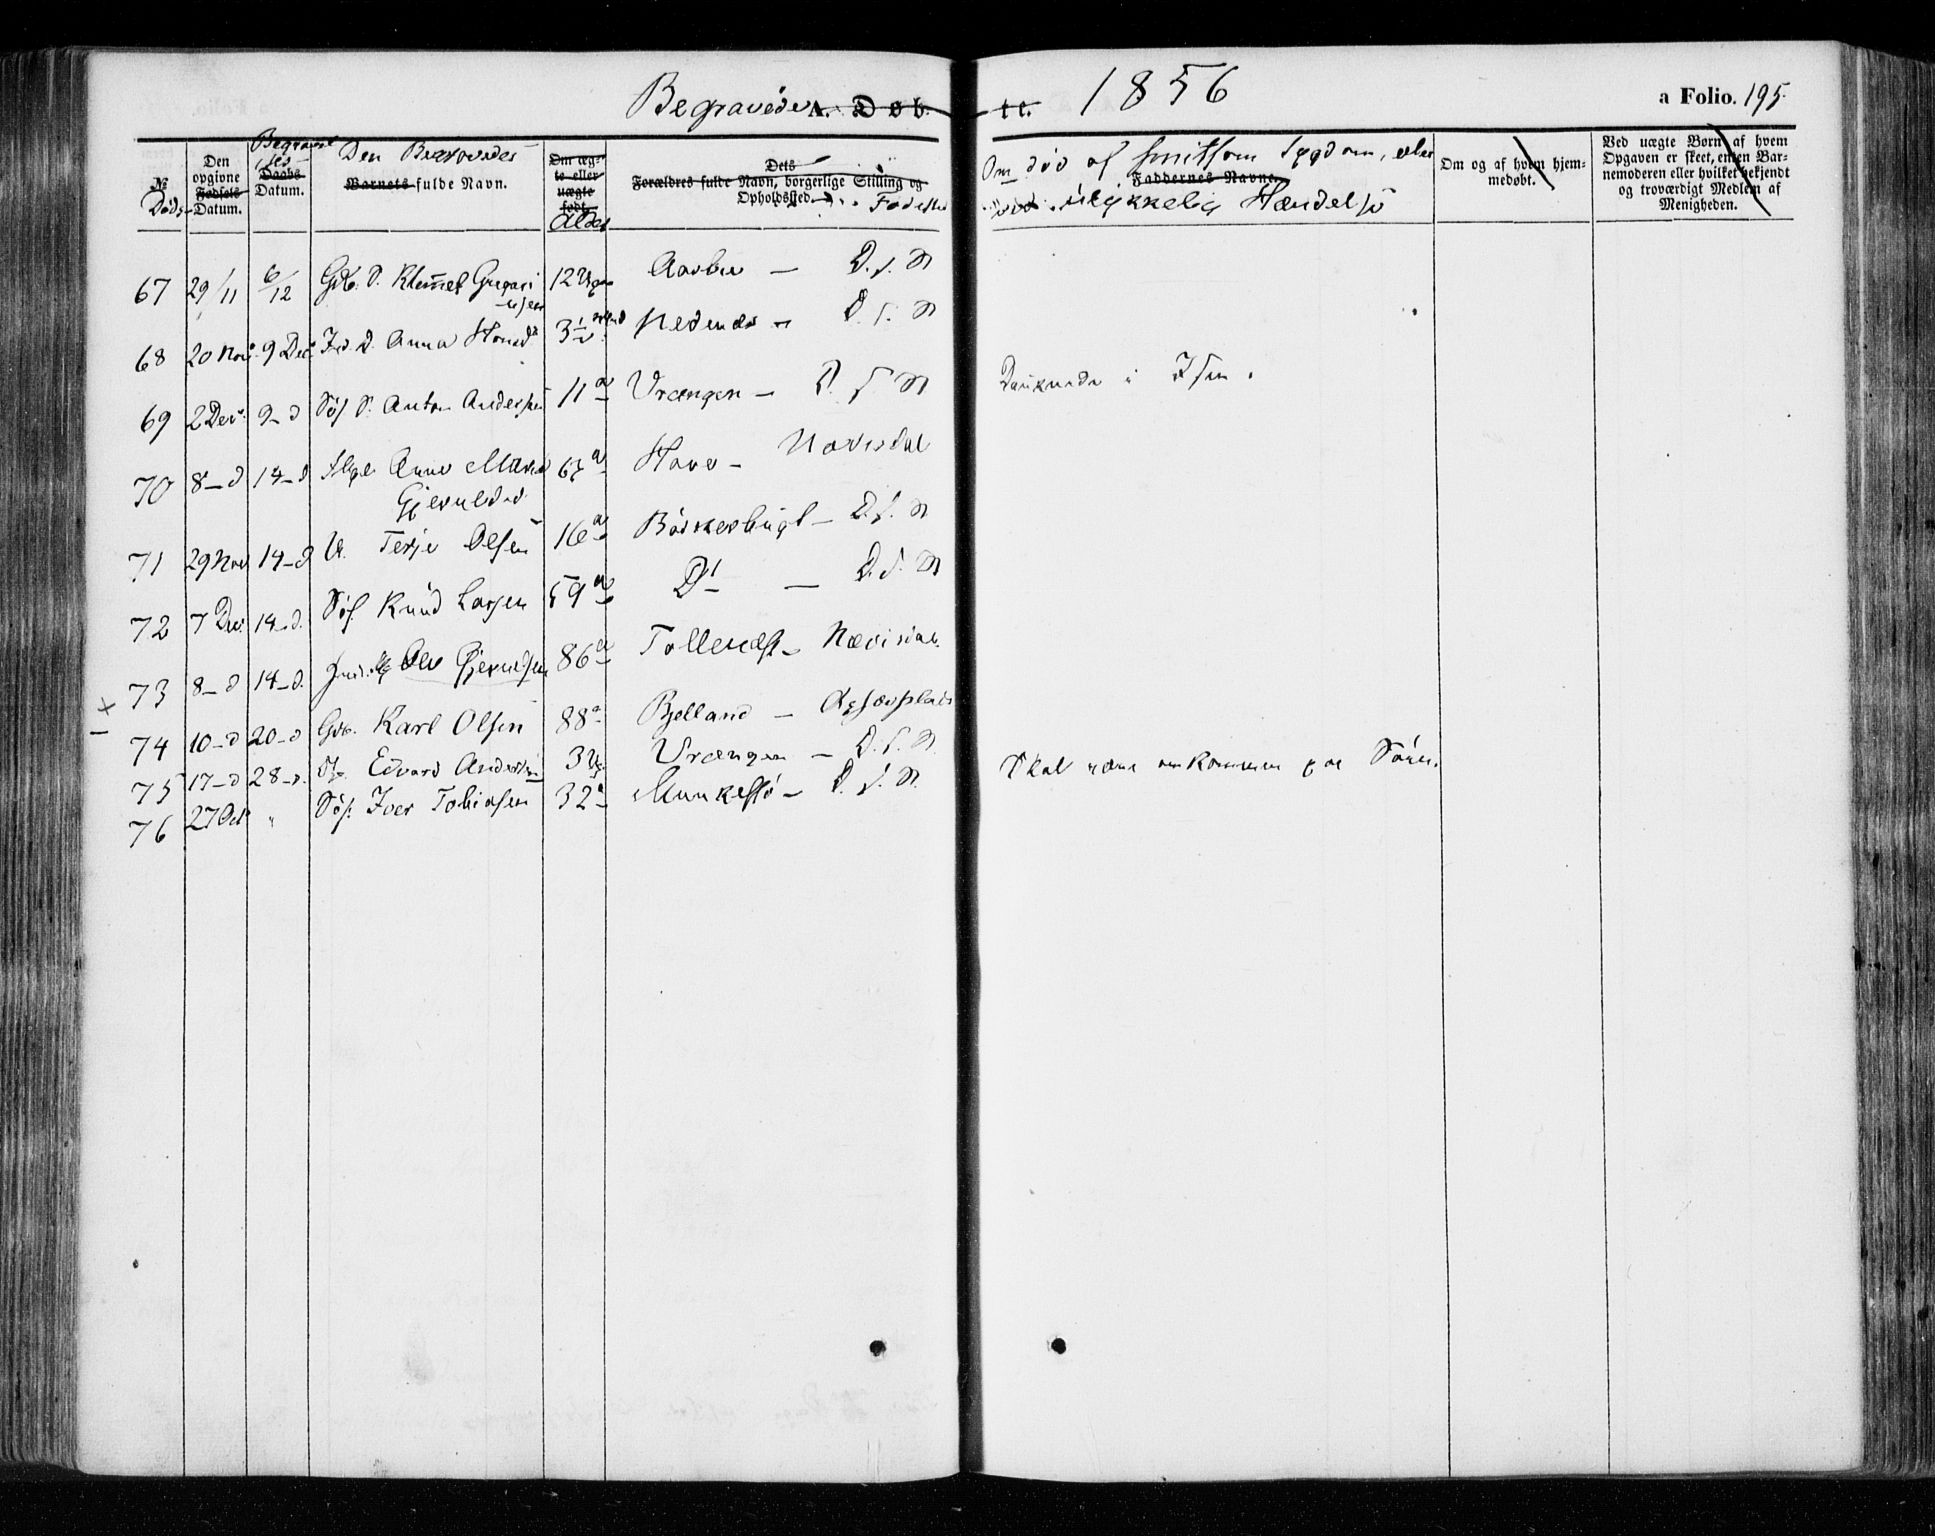 Begravede A. Døb- te. 1856 a Folio. 195.
№ Døds- Den opgivne Fødsels Datum.
Begravelses Daabs Datum.
Den Begravedes Barnets fulde Navn.
Om ægte eller uægte født. Alder
Dets Forældres fulde Navn, borgerlige Stilling og Opholdssted. Fødested
Om død af smitsom Sygdom, eller
Faddernes Navne.
ved ulykkelig Hændelse
Om og af hvem hjemmedøbt.
Ved uægte Børn af hvem Opgaven er skeet, enten Barnemoderen eller hvilket bekjendt og troværdigt Medlem af Menigheden.
67 29/11 6/12 Gdb. S. Klemmet Gregari- usen 12 Uger Aasbie — D. S. N
68 20 Nov. 9 Dec. Ind. D. Anna Hansd. 3 1/2 Nedenes — D. S. N
69 2 Dec. 9 - d Søf. S. Anton Andersen 11 a Vrængen — D. S. N Druknede i Isen.
70 8 - d 14 - d Anne Marie 67 a Hove — Nævisdal
Gjerulsdd
71 29 Nov 14 - d U. Terje Olsen 16 a Barkerbugt — D. S. N
72 7 Dec. 14 - d. Søf. Knud Larsen 59 a Do — D. S. N
73 8 - d 14 - d. Ole Gjerulsen 86 a Tollenæst — Nævisdal
+
74 10 - d 20 - d Gdb. Karl Olsen 88 a Bjelland —
75 17 - d 28 - d. Edvard Andersen 3 U. Vrængen — D. S. N.
76 27 Oct. " Søf. Iver Tobiasen 32 a Munkessø — D. S. N. Skal være omkommen paa Søen.